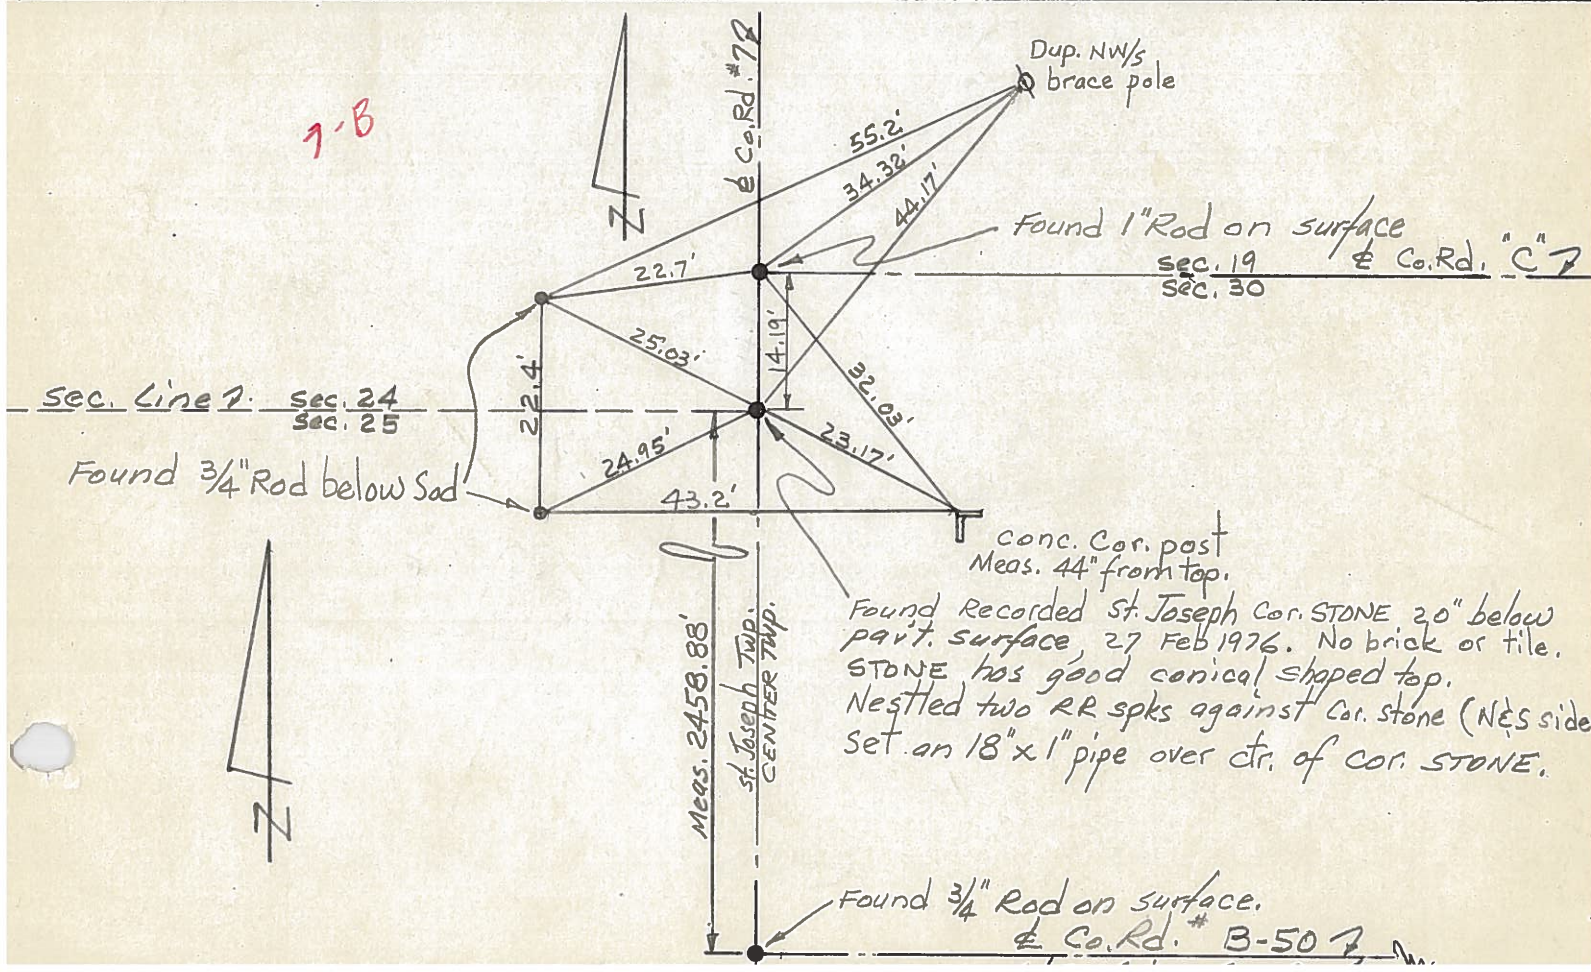 7-B
N
℄ Co.Rd. #7
Dup. NW/s
brace pole
55.2'
34.32'
44.17'
Found 1" Rod on surface
℄ Co.Rd. "C"
sec. 19
sec. 30
22.7'
14.19'
25.03'
22.4'
32.03'
sec. Line
sec. 24
sec. 25
24.95'
23.17'
Found 3/4" Rod below Sod
43.2'
conc. Cor. post
Meas. 44" from top.
Found Recorded St. Joseph Cor. STONE 20" below
pav't. surface, 27 Feb 1976. No brick or tile.
STONE has good conical shaped top.
Nestled two RR spks against Cor. stone (N&S side
Set an 18" x 1" pipe over ctr. of Cor. STONE.
Meas. 2458.88'
St. Joseph Twp.
CENTER TWP.
N
Found 3/4" Rod on surface.
℄ Co. Rd. # B-50